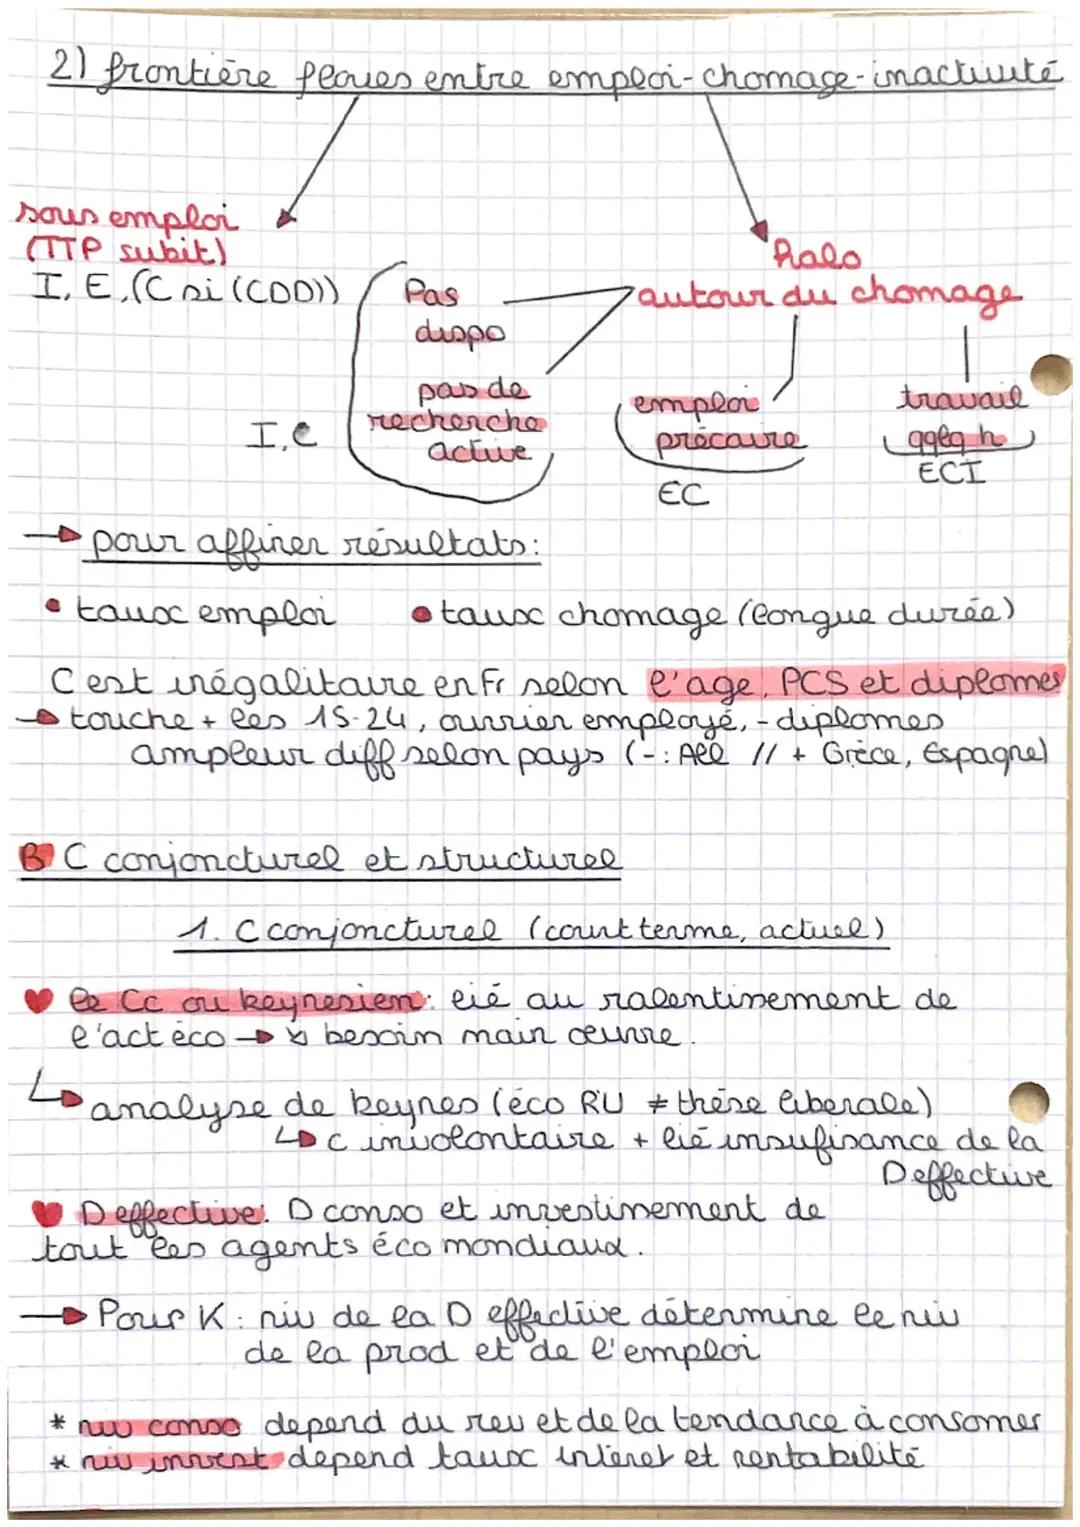 2) frontière floues entre emploi-chomage-inactivité
sous emploi
(TTP subit)
I, E, (C si (CDD))
halo
autour du chomage
Pas
dispo
pas de
recherche
active
I, C
emploi
précaire
EC
travail
qqlq h
ECI
→ pour affiner résultats:
• taux emploi • taux chomage (longue durée)
C est inégalitaire en Fr selon l'age, PCS et diplomes
→ touche + les 15-24, ouvrier employé, - diplomes
ampleur diff selon pays (-: All // + Grèce, Espagne)
B C conjoncturel et structurel
1. C conjoncturel (court terme, actuel)
♥ le Cc ou keynesien: lié au ralentissement de
l'act éco → ↘ besoin main œuvre.
↳ analyse de keynes (éco RU ≠ thèse liberale)
↳ c involontaire + lié insufisance de la
D effective
♥ D effective: D conso et investissement de
tout les agents éco mondiaux.
→ Pour K: niv de la D effective détermine le niv
de la prod et de l'emploi
* niv conso depend du rev et de la tendance à consomer
* niv invest depend taux intéret et rentabilité